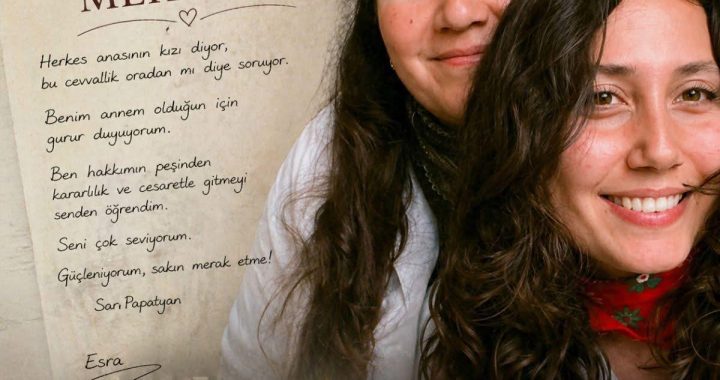 Herkes anasının kızı diyor,
bu cevvallik oradan mı diye soruyor.
Benim annem olduğun için
gurur duyuyorum.
Ben hakkımın peşinden
kararlılık ve cesaretle gitmeyi
senden öğrendim.
Seni çok seviyorum.
Güçleniyorum, sakın merak etme!
Sarı Papatyan
Esra